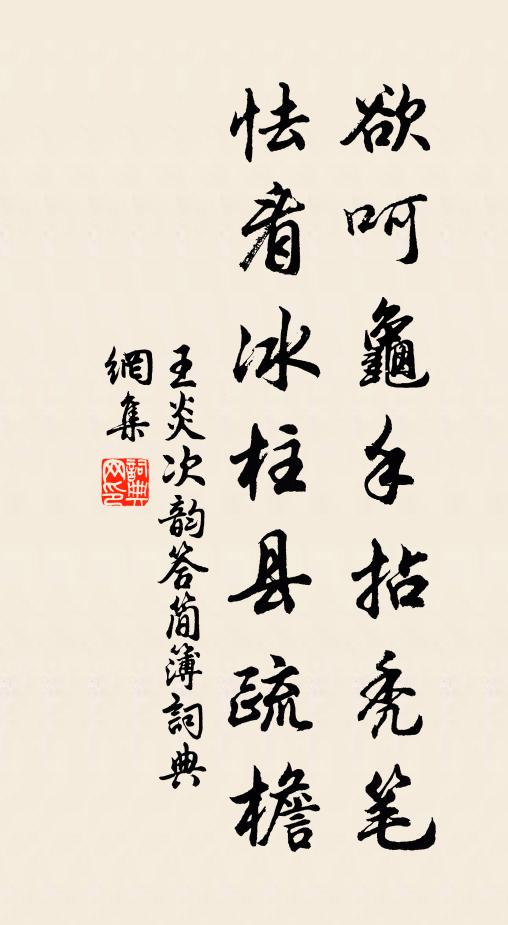 欲呵龜手拈秃笔
怯看冰柱县疏檐
王炎次韵答简簿詞典
網集
詞典網印